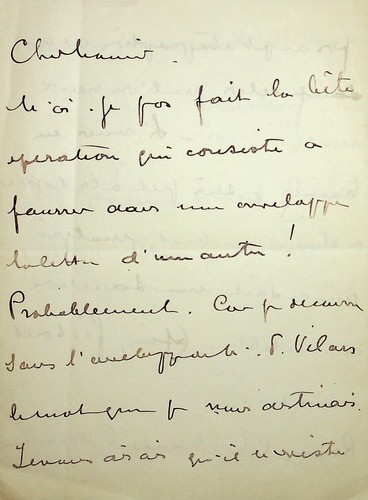 Cher ami.
N'ai-je pas fait la bête
opération qui consiste à
fourrer dans une enveloppe
la lettre d'un autre !
Probablement. Car je découvre
sous l'enveloppe de P. Vilars
le mot que je vous destinais.
Je vous disais qu'il existe